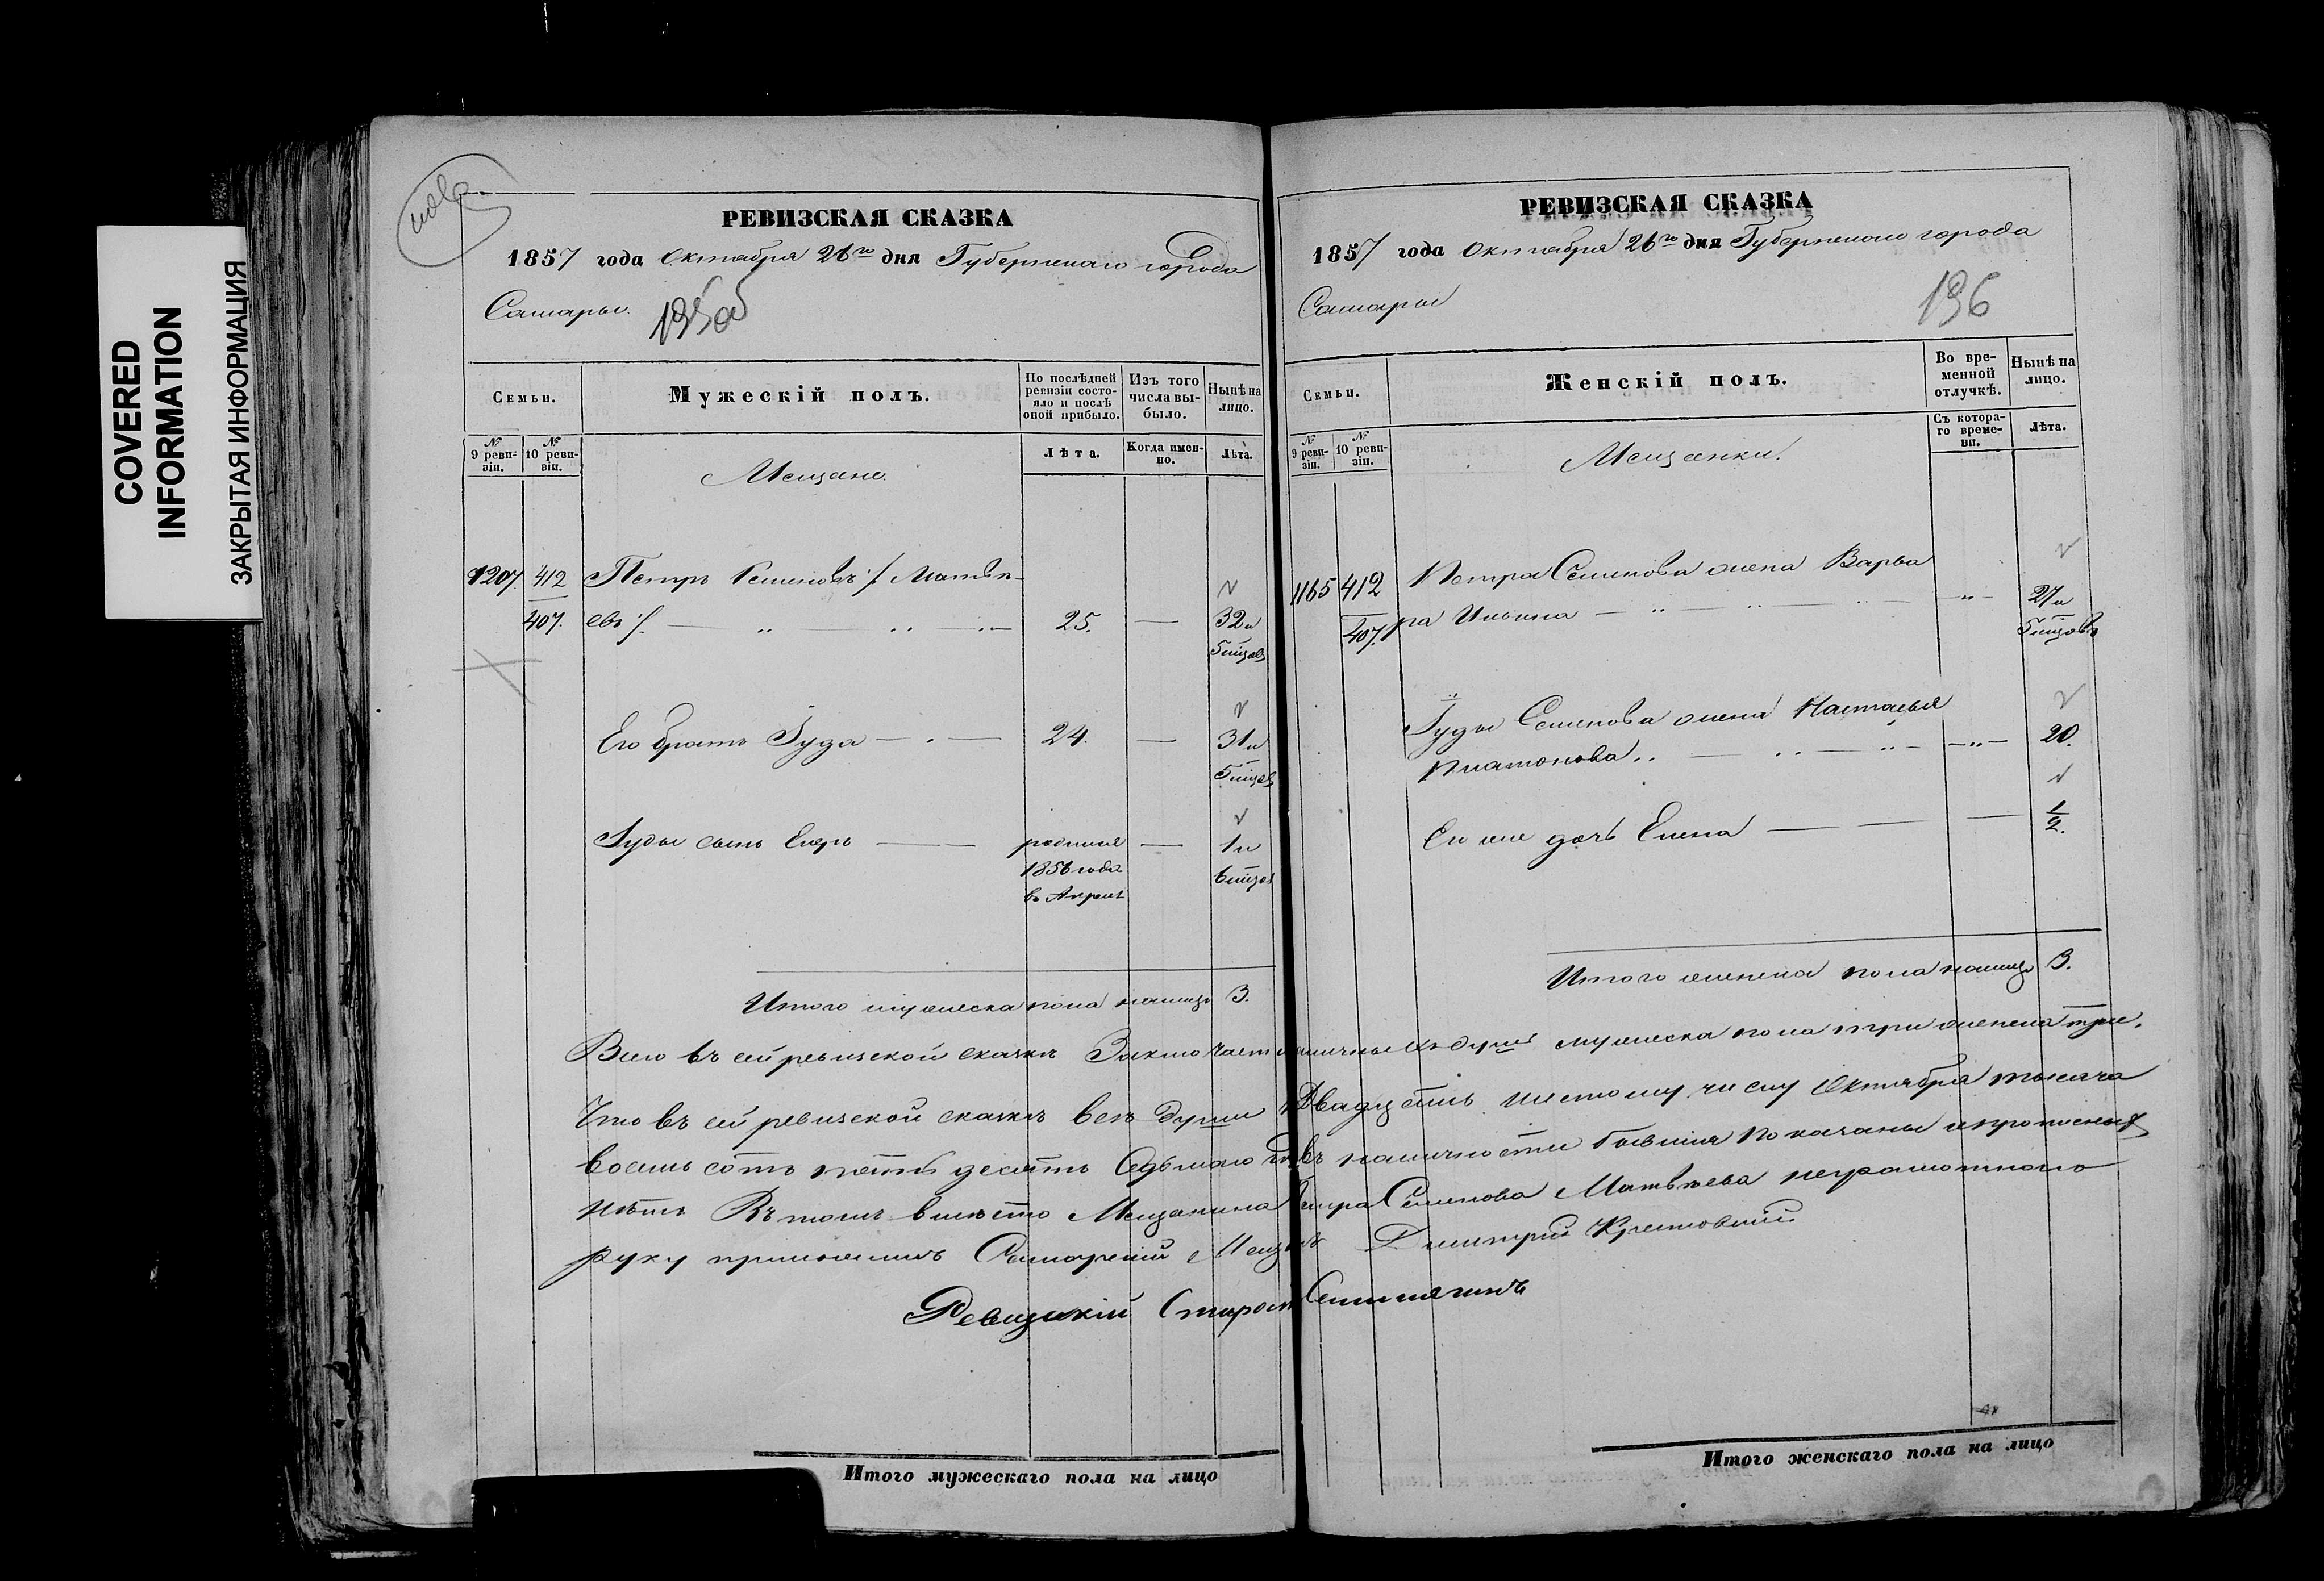 COVERED
INFORMATION
ЗАКРЫТАЯ ИНФОРМАЦИЯ
РЕВИЗСКАЯ СКАЗКА
1857 года Октября 26го дня Губернскаго города
Самары. 195об
Семьи.
Мужескій полъ.
По послѣдней ревизіи состояло и послѣ оной прибыло.
Изъ того числа выбыло.
Нынѣ на лицо.
№ 9 ревизіи.
№ 10 ревизіи.
Мещане.
Лѣта.
Когда именно.
Лѣта.
1207. 412 Петръ Семеновъ /: Матвѣ-
407. евъ :/. 25. — 32 и
5 мѣцов
Его братъ Іуда — 24. — 31 и
5 мѣцов
Іуды сынъ Егоръ — родился — 1 и
1856 года 6 мѣцов
въ Апреле
Итого мужеска пола налицо 3.
РЕВИЗСКАЯ СКАЗКА
1857 года Октября 26го дня Губернскаго города
Самары 196
Семьи.
Женскій полъ.
Во временной отлучкѣ.
Нынѣ на лицо.
№ 9 ревизіи.
№ 10 ревизіи.
Мещанки.
Съ котораго времени.
Лѣта.
1165 412 Петра Семенова жена Варва
407. ра Ильина — 27 и
5 мѣцовъ
Іуды Семенова жена Настасья
Платонова — 20.
Ея же дочь Елена — 1/2.
Итого женска пола налицо 3.
Всего въ сей ревизской сказкѣ Заключается наличныхъ душъ мужеска пола три женска три.
Что въ сей ревизской сказкѣ всѣ души Двадцать шестому числу Октября тысяча
восемь сотъ пятьдесятъ седьмаго въ наличности бывшия показаны и прописных
нѣтъ Въ томъ вместо Мещанина Петра Семенова Матвѣева неграмотнаго
руку приложилъ Самарский Мещ Дмитрий
Ревизскій Старост
Итого мужескаго пола на лицо
Итого женскаго пола на лицо